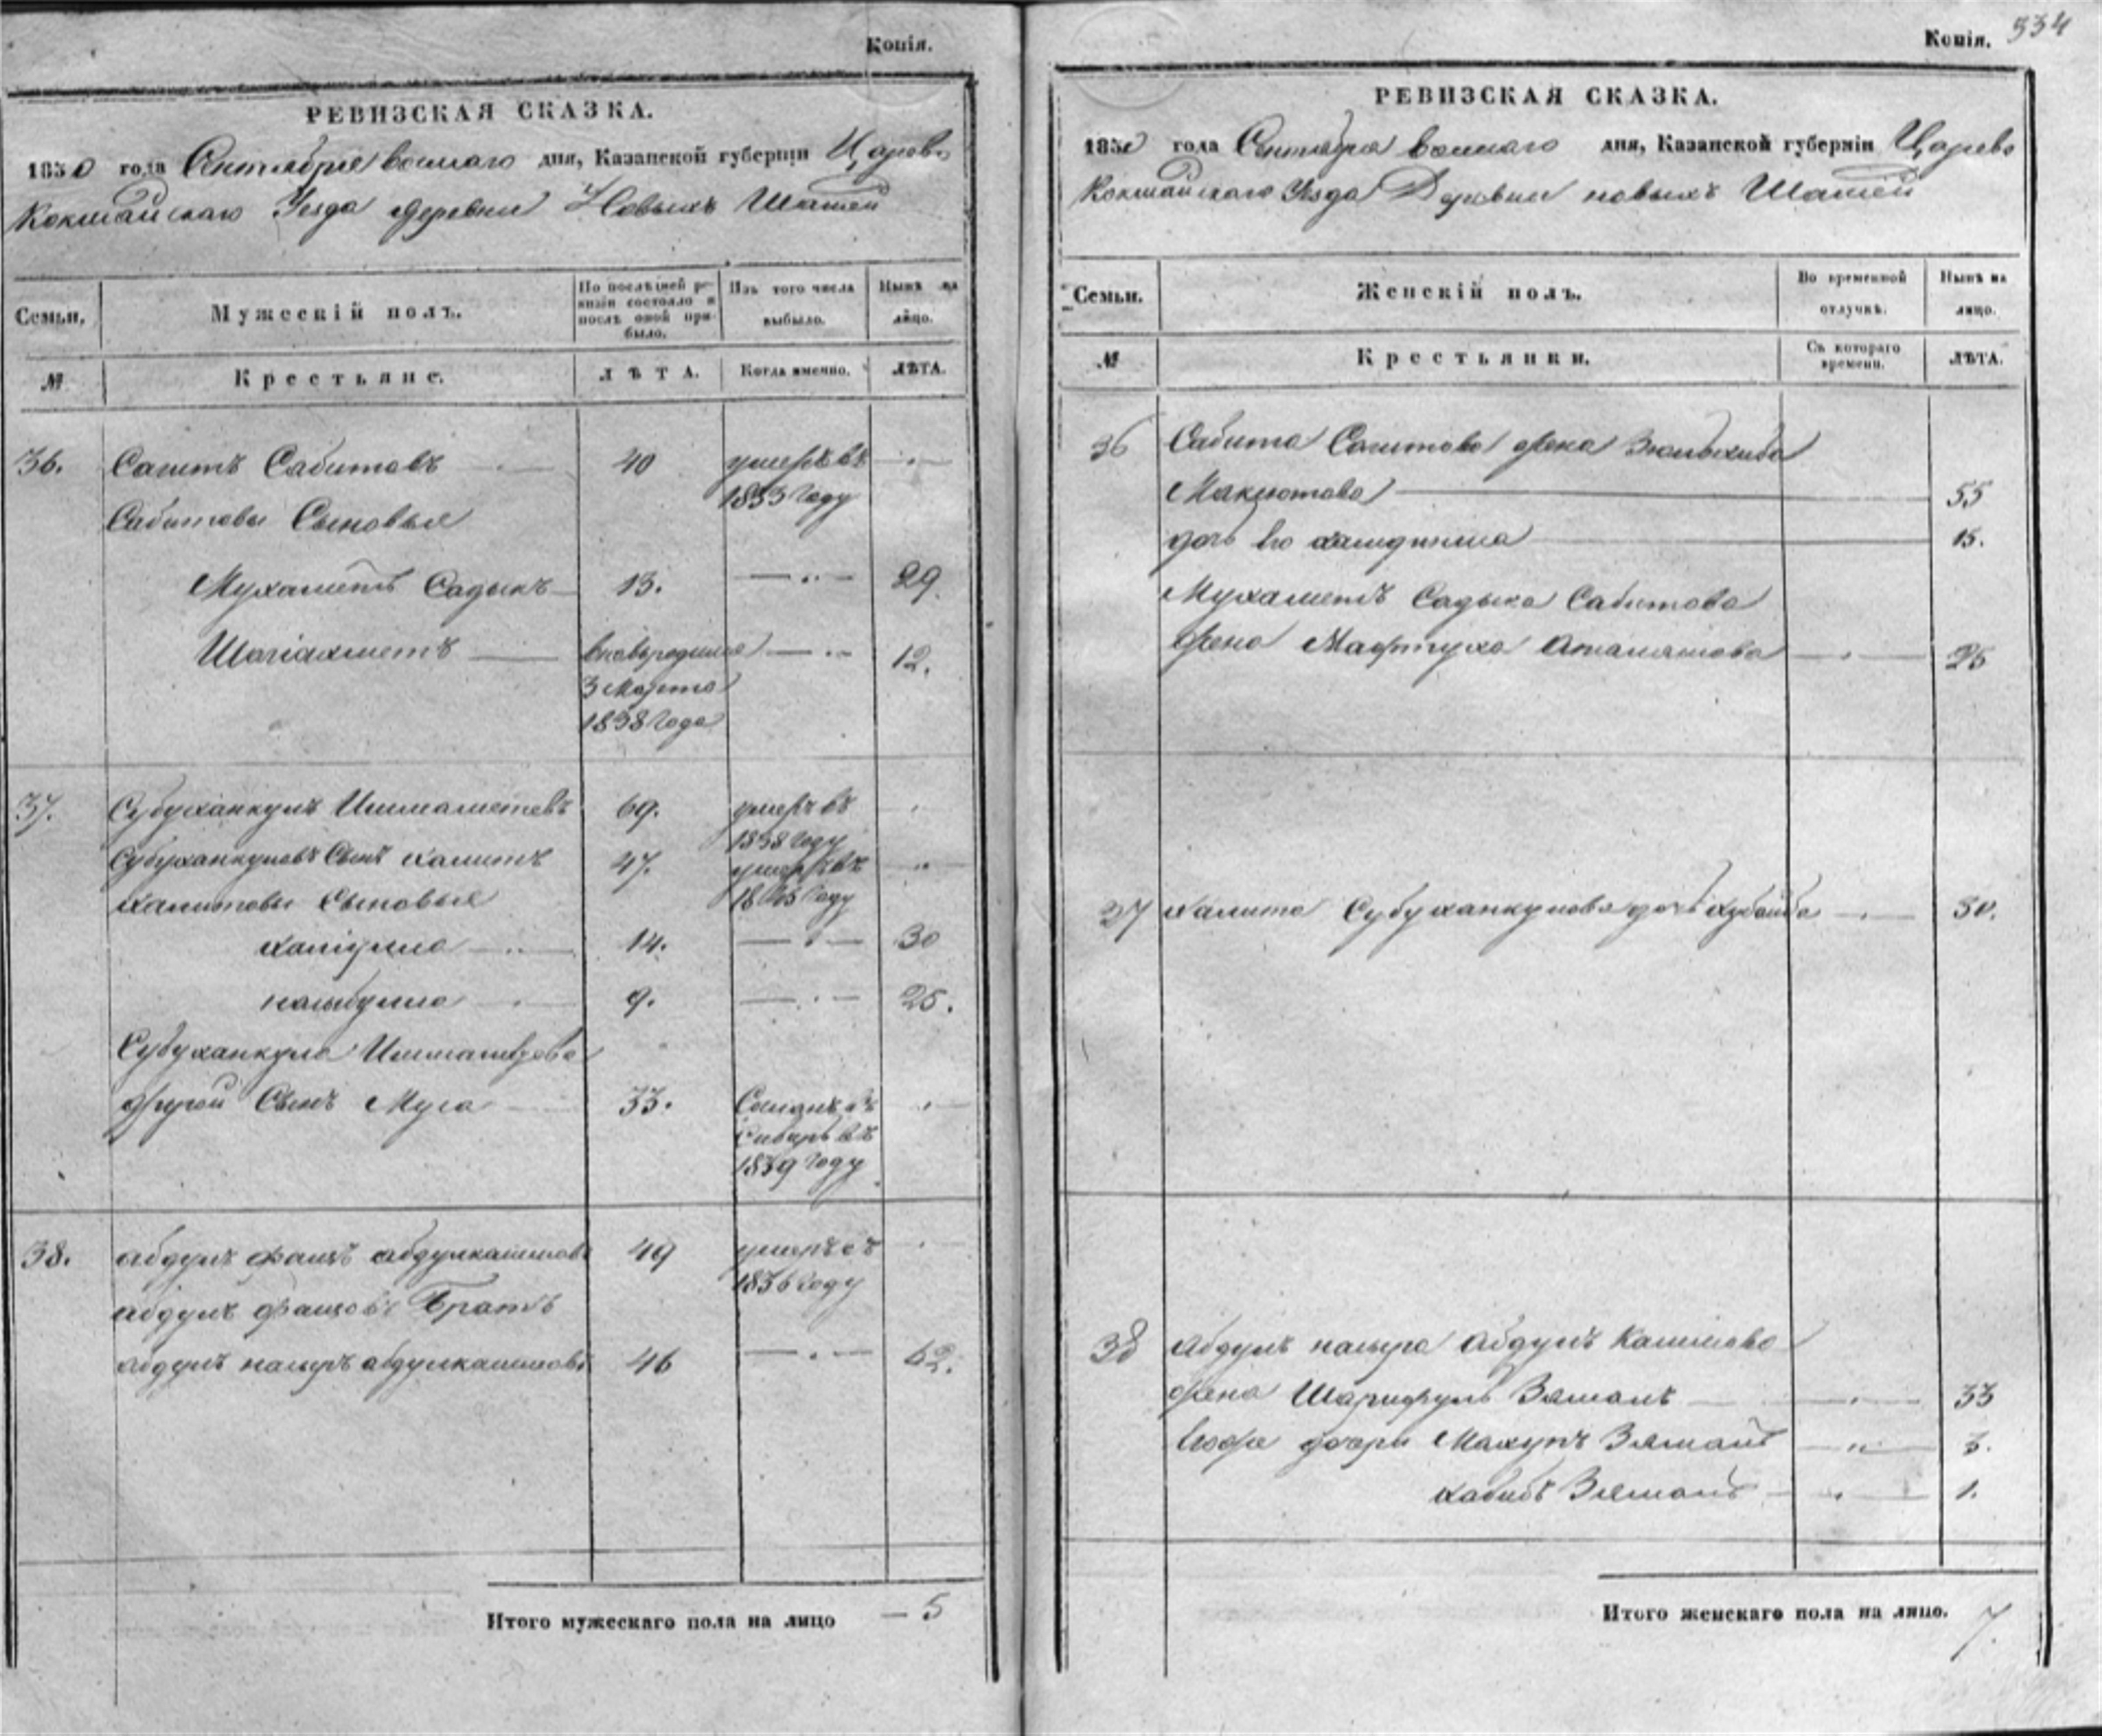 Копія.
РЕВИЗСКАЯ СКАЗКА.
1850 года Сентября восмаго дня, Казанской губерніи Царево
Кокшайскаго Уезда деревни Новыхъ
Семьи. Мужескій полъ. По послѣдней ревизіи состояло и послѣ оной прибыло. Изъ того числа выбыло. Нынѣ на лицо.
№ Крестьяне. ЛѢТА. Когда именно. ЛѢТА.
36. Сагитъ Сабитовъ 40 умеръ въ
1833 Году
Сабитовы Сыновья
Мухаметъ Садыкъ 13. 29
Шагіахметъ вновьродился 12.
3 Марта
1838 Года
37. Субуханкулъ Ишмаметевъ 69. умеръ въ
1838 Году
Субуханкуловъ Сынъ халитъ 47. умеръ въ
Году
халитовы Сыновья
халіулла 14. 30
насыбулла 9. 25.
Субуханкула
другой Сынъ Муса 33. Сосланъ въ
Сибирь въ
1839 Году
38. абдулъ абдулкашимовъ 49 умеръ въ
1836 Году
абдулъ Братъ
абдулъ насыръ абдулкашимовъ 46 62.
Итого мужескаго пола на лицо 5
Копія. 334
РЕВИЗСКАЯ СКАЗКА.
1850 года Сентября восмаго дня, Казанской губерніи Царево
Кокшайскаго Уезда Деревни новыхъ
Семьи. Женскій полъ. Во временной отлучкѣ. Нынѣ на лицо.
№ Крестьянки. Съ котораго времени. ЛѢТА.
36 Сабита Сагитова жена
Максютова 55
дочь его 15.
Мухаметъ Садыка Сабитова
жена Мафтуха 25
37 халита Субуханкулова дочь хубайба 30.
38 абдулъ насыра абдулъ Кашимова
жена Шарифулъ Зямалъ 33
Егоже дочери Махупъ Зямалъ 3.
хабибъ Зямалъ 1.
Итого женскаго пола на лицо. 7.